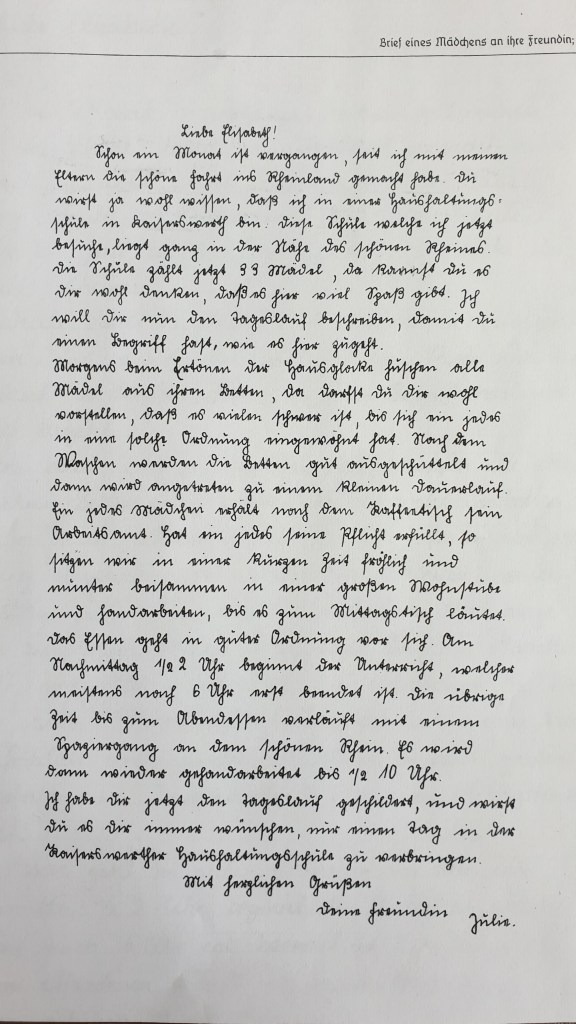 Brief eines Mädchens an ihre Freundin;
Liebe Elisabeth!
Schon ein Monat ist vergangen, seit ich mit meinen
Eltern die schöne Fahrt ins Rheinland gemacht habe. Du
wirst ja wohl wissen, daß ich in einer Haushaltungs-
schule in Kaiserswerth bin. Diese Schule welche ich jetzt
besuche, liegt ganz in der Nähe des schönen Rheines.
Die Schule zählt jetzt 33 Mädel, da kannst Du es
Dir wohl denken, daß es hier viel Spaß gibt. Ich
will Dir nun den Tageslauf beschreiben, damit Du
einen Begriff hast, wie es hier zugeht.
Morgens beim Ertönen der Hausglocke huschen alle
Mädel aus ihren Betten, da darfst Du Dir wohl
vorstellen, daß es vielen schwer ist, bis sich ein jedes
in eine solche Ordnung eingewöhnt hat. Nach dem
Waschen werden die Betten gut ausgeschüttelt und
dann wird angetreten zu einem kleinen Dauerlauf.
Ein jedes Mädchen erhält nach dem Kaffeetisch sein
Arbeitsamt. Hat ein jedes seine Pflicht erfüllt, so
sitzen wir in einer kurzen Zeit fröhlich und
munter beisammen in einer großen Wohnstube
und handarbeiten, bis es zum Mittagstisch läutet.
Das Essen geht in guter Ordnung vor sich. Am
Nachmittag 1/2 2 Uhr beginnt der Unterricht, welcher
meistens nach 6 Uhr erst beendet ist. Die übrige
Zeit bis zum Abendessen verläuft mit einem
Spaziergang an dem schönen Rhein. Es wird
dann wieder gehandarbeitet bis 1/2 10 Uhr.
Ich habe Dir jetzt den Tageslauf geschildert, und wirst
Du es Dir immer wünschen, nur einen Tag in der
Kaiserswerther Haushaltungsschule zu verbringen.
Mit herzlichen Grüßen
Deine Freundin Julie.